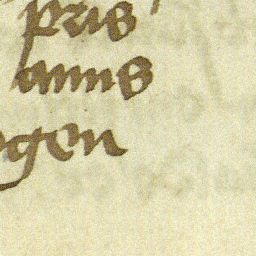 pris
annis
ogen